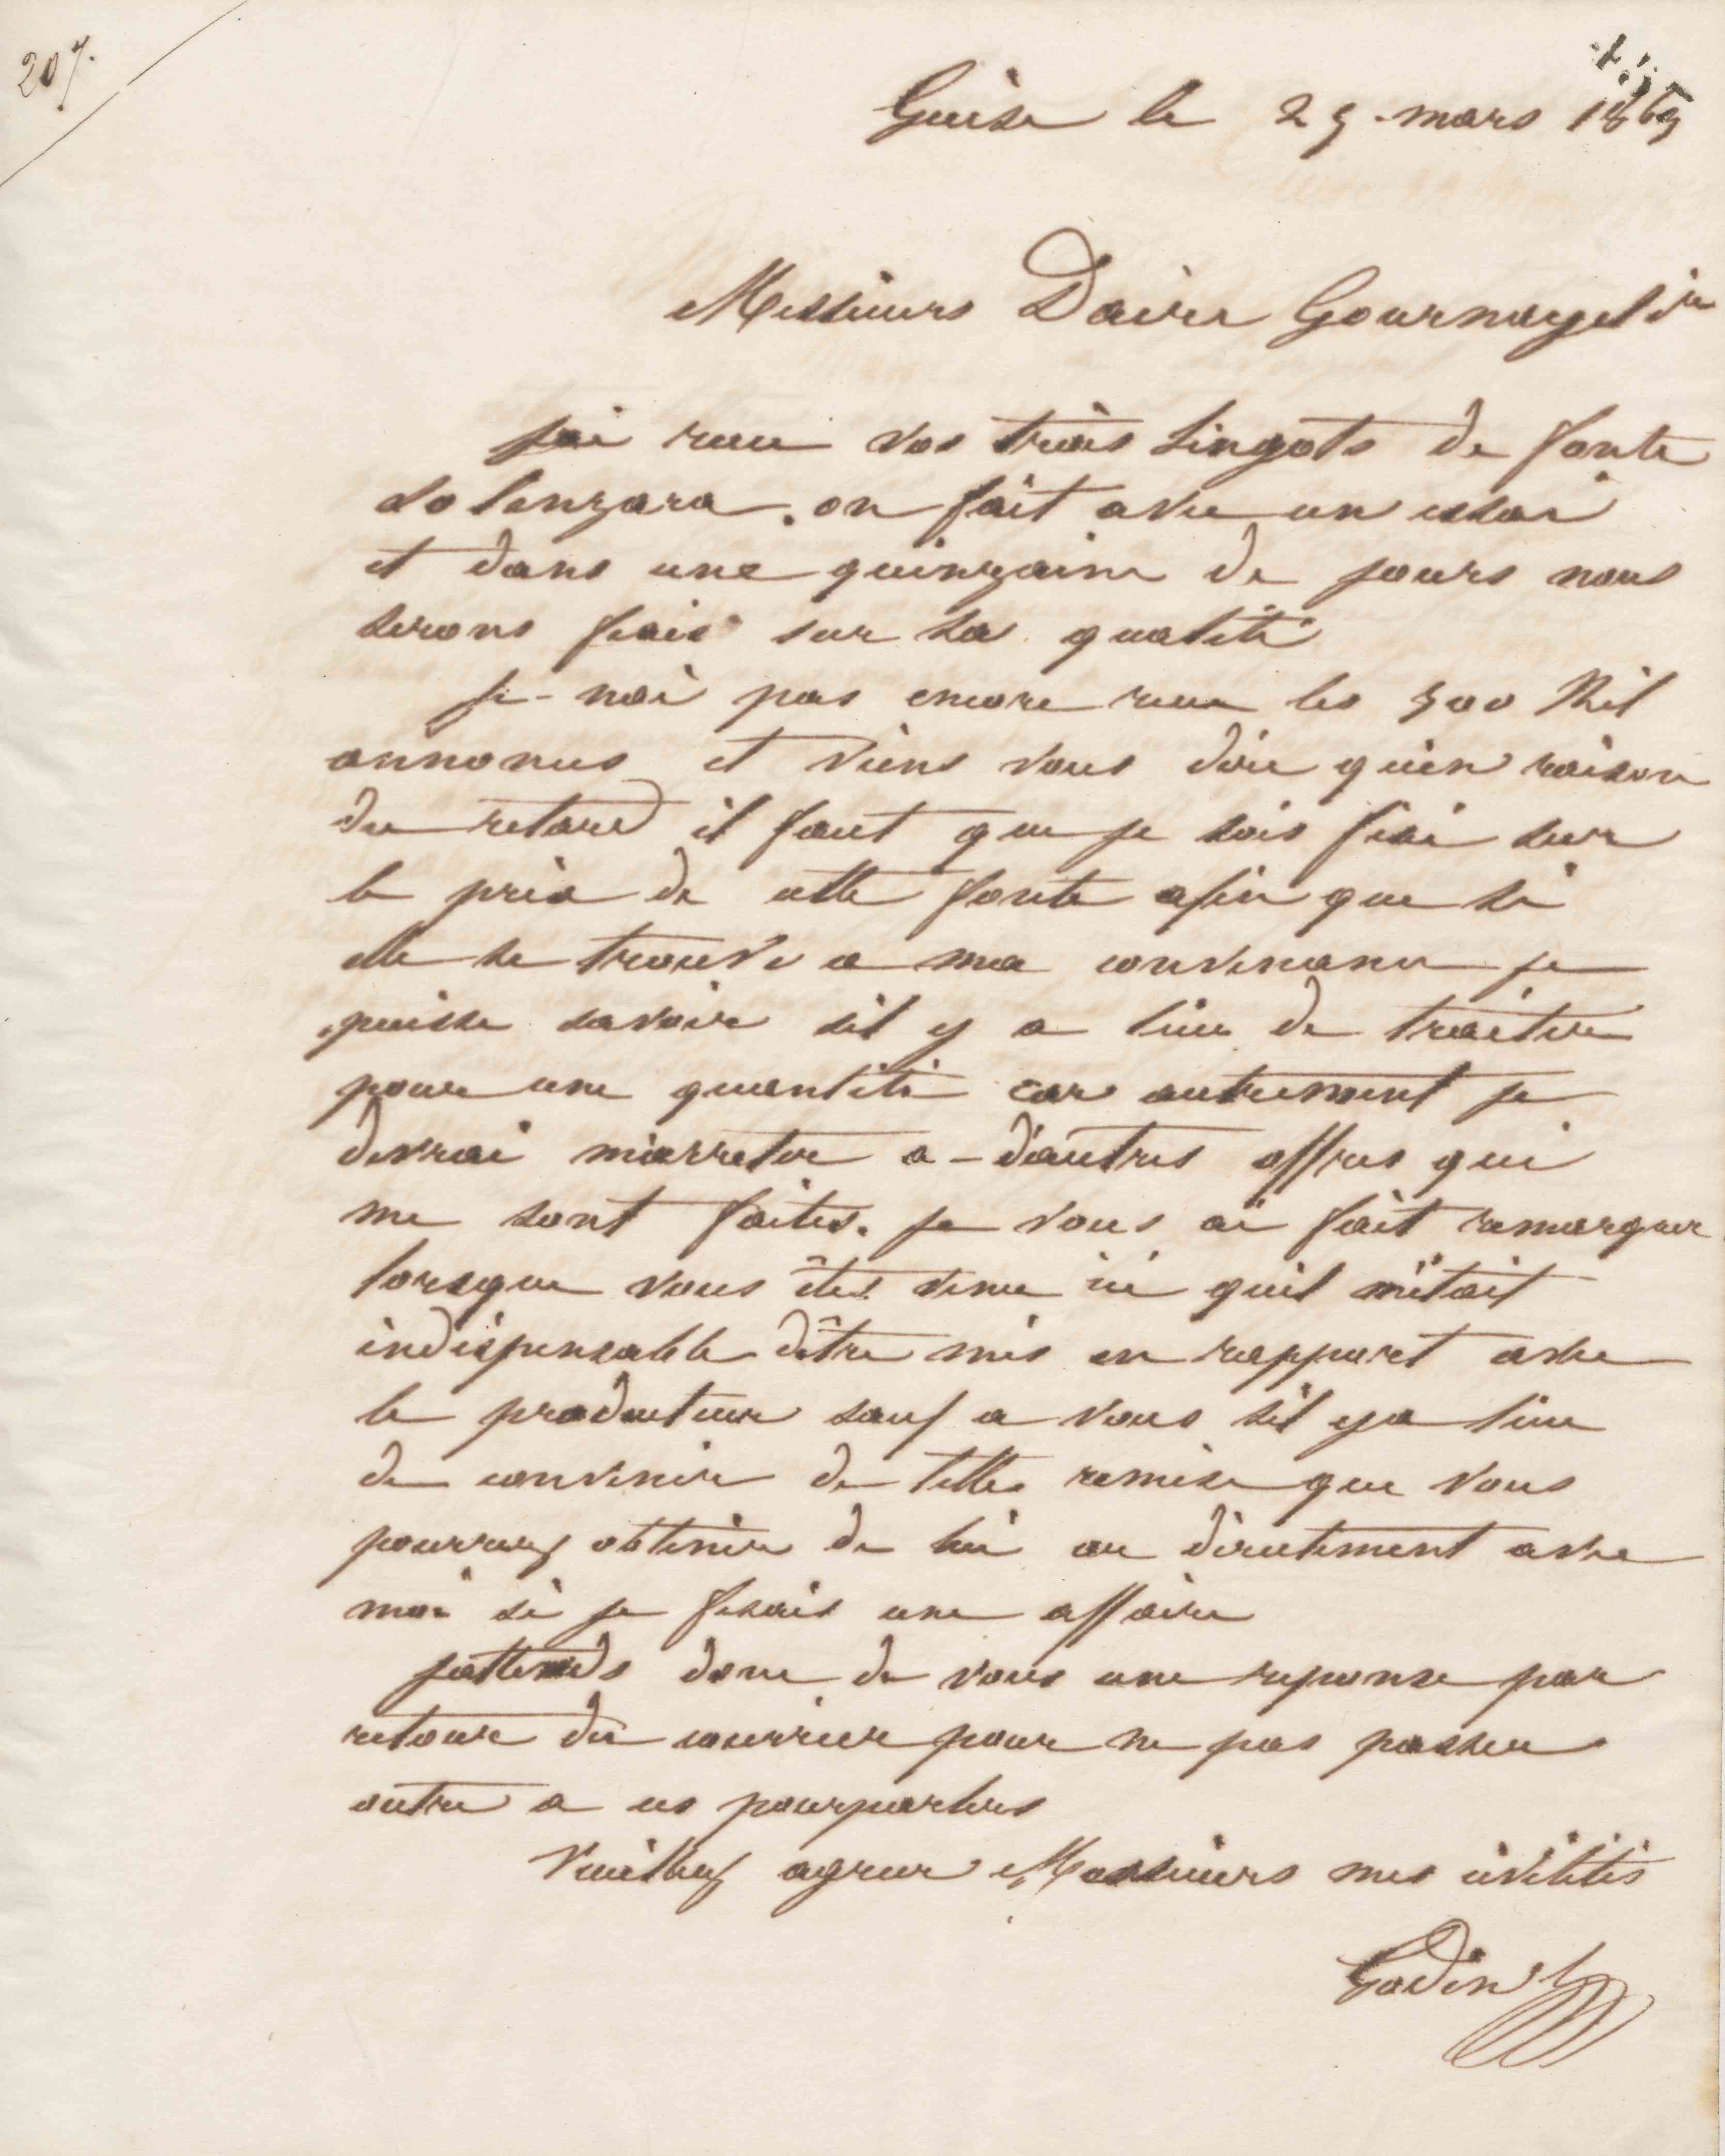 207.
Guise le 29 mars 1869
Messieurs Daire Gournay et Cie
j'ai recu vos trois Lingots de fonte
Solenzara. on fait avec un essai
et dans une quinzaine de jours nous
serons fixés sur sa qualité
je n'ai pas encore recu les 500 Kil
annoncés et viens vous dire qu'en raison
du retard il faut que je sois fixé sur
le prix de cette fonte afin que si
elle se trouve a ma convenance je
puisse savoir s'il y a lieu de traiter
pour une quantité car autrement je
devrai m'arreter a d'autres offres qui
me sont faites. je vous ai fait remarquer
lorsque vous êtes venu ici qu'il m'était
indispensable d'être mis en rapport avec
le producteur sauf a vous s'il y a lieu
de convenir de telle remise que vous
pourrez obtenir de lui ou directement avec
moi si je fesais une affaire
j'attends donc de vous une reponse par
retour du courrier pour ne pas passer
outre a ces pourparlers
Veuillez agreer Messieurs mes civilités
Godin